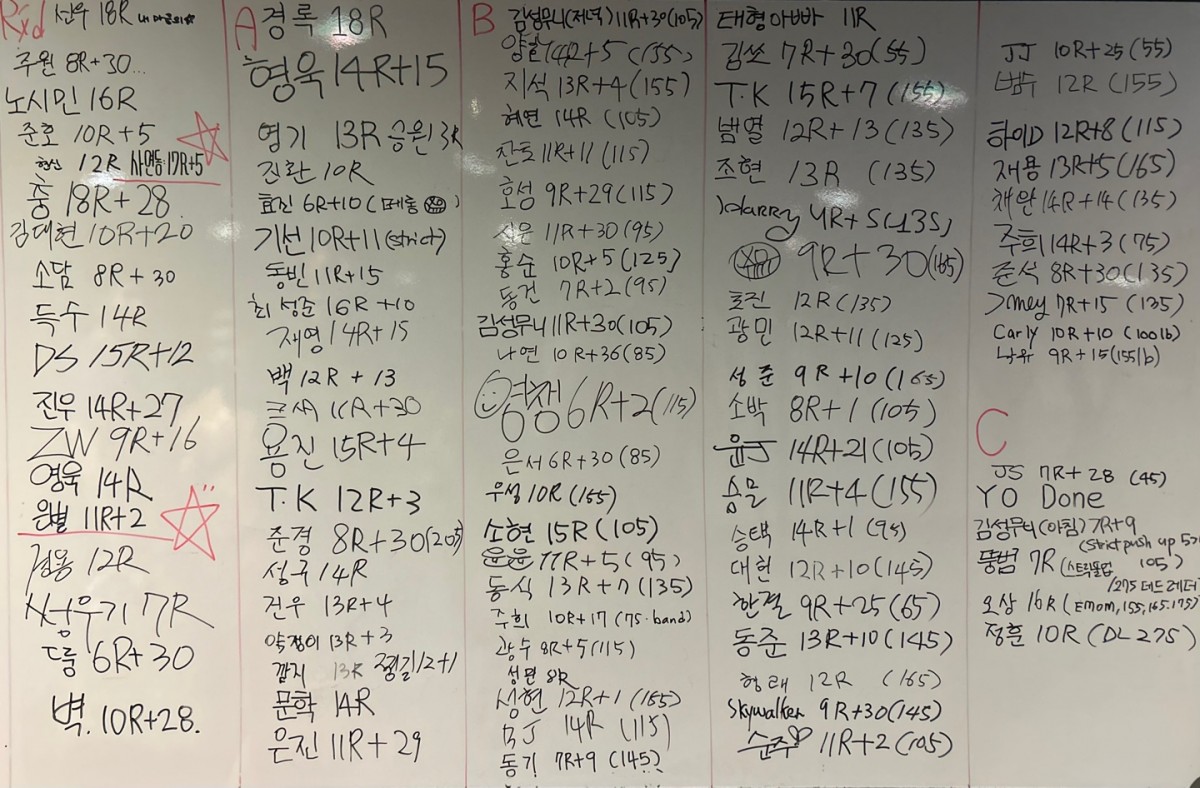 Rxd
신우 18R
주원 8R+30...
노시민 16R
준호 10R+5
형신 12R 사연동 17R+5
충 18R+28
김대현 10R+20
소담 8R+30
득수 14R
DS 15R+12
진우 14R+27
ZW 9R+16
영욱 14R
은별 11R+2
12R
7R
드름 6R+30
벽. 10R+28.
A
경록 18R
형욱 14R+15
영기 13R 승원 3R
진환 10R
효진 6R+10
기선 10R+11 (strict)
동빈 11R+15
최성준 16R+10
재영 14R+15
백 12R + 13
용진 15R+4
T.K 12R+3
준경 8R+30(205)
성구 14R
건우 13R+4
약점이 13R+3
깜지 13R 12+1
문학 14R
은진 11R+29
B
김성무니(저녁) 11R+30(105)
양호 14R+5 (155)
지석 13R+4 (155)
혜연 14R (105)
찬토 11R+11 (115)
호성 9R+29 (115)
11R+30 (95)
홍순 10R+5 (125)
동건 7R+2 (95)
김성무니 11R+30 (105)
나연 10R+36 (85)
영정 6R+2 (115)
은서 6R+30 (85)
우성 10R (155)
소현 15R (105)
윤윤 11R+5 (95)
동식 13R+7 (135)
주희 10R+17 (75-band)
광수 8R+5 (115)
성편 8R
성현 12R+1 (155)
14R (115)
동기 7R+9 (145)
태형아빠 11R
김쏘 7R+30 (55)
T.K 15R+7 (155)
범열 12R+13 (135)
조현 13R (135)
Harry 4R+5 (135)
9R+30 (165)
효진 12R (135)
광민 12R+11 (125)
성준 9R+10 (165)
소박 8R+1 (105)
윤J 14R+21 (105)
11R+4 (155)
승택 14R+1 (95)
대현 12R+10 (145)
한결 9R+25 (65)
동준 13R+10 (145)
형태 12R (165)
Skywalker 9R+30 (145)
순주 11R+2 (105)
JJ 10R+25 (55)
범수 12R (155)
하이D 12R+8 (115)
재용 13R+5 (165)
채완 14R+14 (135)
주희 14R+3 (75)
준석 8R+30 (135)
7R+15 (135)
Carly 10R+10 (100lb)
낙유 9R+15 (155lb)
C
JS 7R+28 (45)
YO Done
김성무니(아침) 7R+9
(strict push up 5
뚱범 7R (스트릭풀업 105)
/275 데드 레더
오상 16R (Emom, 155, 165, 175)
정훈 10R (DL 275)